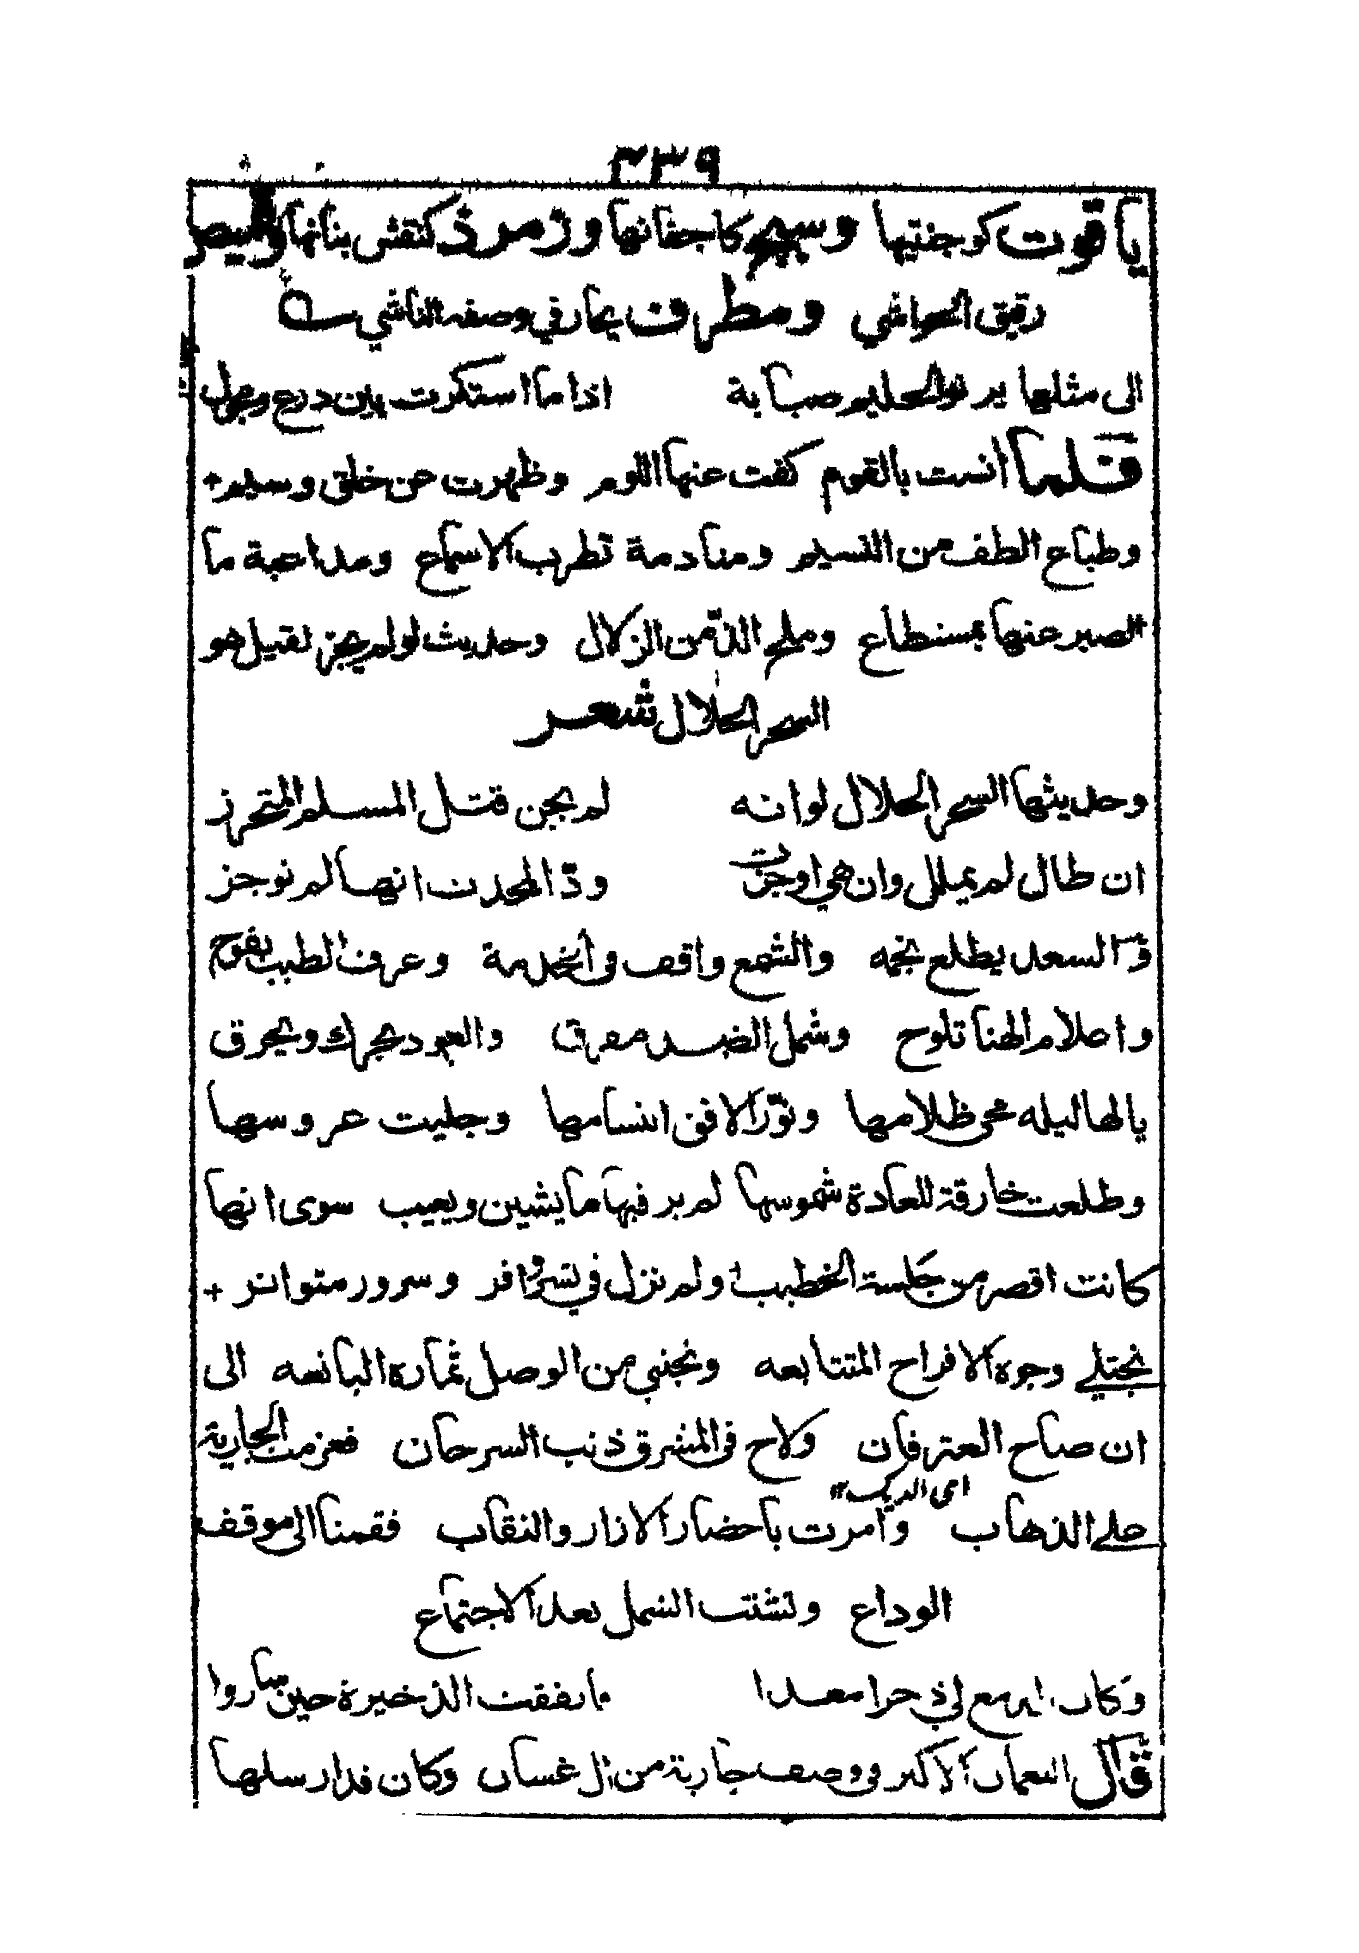 ٤٣٩
ياقوت كوجنتيها وسبج كاجفانها وزمرذ كنقش بنانها وقميص
رقيق الحواشي ومطرف يحار في وصفه الناشي
الى مثلها يرنو الحليم صبابة اذا ما استكرت بين درع ومجول
فلما انست بالقوم كفت عنها اللوم وظهرت عن خلق وسيم
وطباع الطف من النسيم ومنادمة تطرب الاسماع ومداعبة ما
الصبر عنها بمستطاع وملح الذّ من الزلال وحديث لو لم يجز لقيل هو
السحر الحلال شعر
وحديثها السحر الحلال لو انه لم يجن قتل المسلم المتحرز
ان طال لم يملل وان هي اوجزت ودّ المحدث انها لم توجز
والسعد يطلع نجمه والشمع واقف في الخدمة وعرف الطيب يفوح
واعلام الهنا تلوح وشمل الضد مفرق والعود يحرك ويحرق
يا لها ليله محى ظلامها ونوّر الافق ابتسامها وجليت عروسها
وطلعت خارقة للعادة شموسها لم ير فيها ما يشين ويعيب سوى انها
كانت اقصر من جلسة الخطيب ولم نزل في بشر وافر وسرور متواتر
نجتلي وجوه الافراح المتتابعه ونجني من الوصل ثماره اليانعه الى
ان صاح العترفان ولاح في المشرق ذنب السرحان فعزمت الجارية
اى الديك
على الذهاب وامرت باحضار الازار والنقاب فقمنا الى موقف
الوداع وتشتت الشمل بعد الاجتماع
وكان الدمع لي ذخرا معدا فانفقت الذخيرة حين ساروا
قال النعمان الاكبر في وصف جارية من ال غسان وكان قد ارسلها